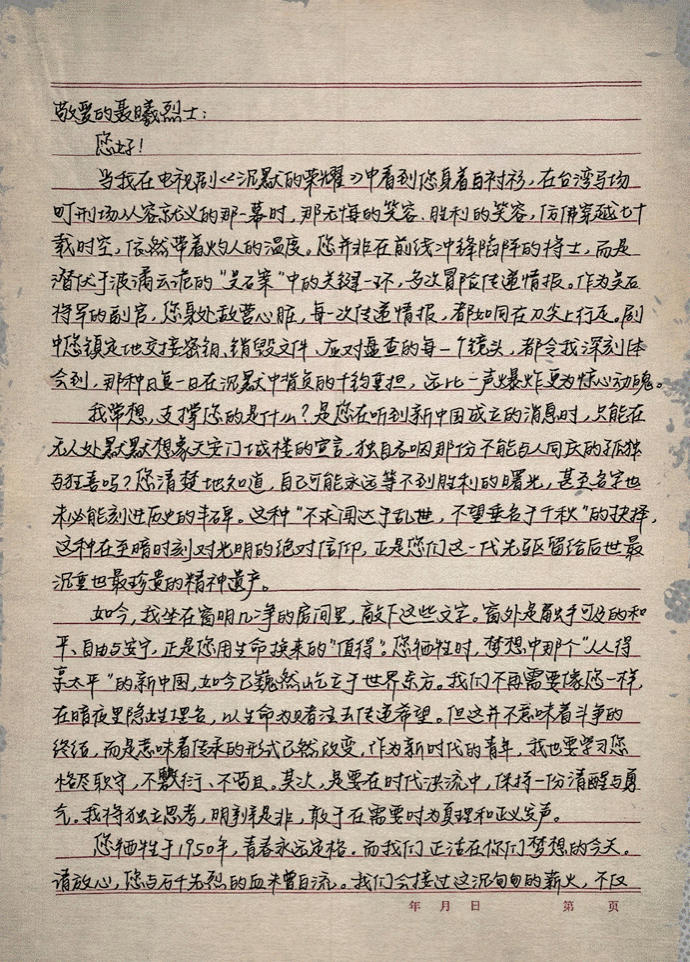 敬爱的聂曦烈士：
您好！
当我在电视剧《沉默的荣耀》中看到您身着白衬衫，在台湾马场
町刑场从容就义的那一幕时，那无悔的笑容、胜利的笑容，仿佛穿越七十
载时空，依然带着灼人的温度。您并非在前线冲锋陷阵的将士，而是
潜伏于波谲云诡的“吴石案”中的关键一环，多次冒险传递情报。作为吴石
将军的副官，您身处敌营心脏，每一次传递情报，都如同在刀尖上行走。剧
中您镇定地交接密钥、销毁文件、应对盘查的每一个镜头，都令我深刻体
会到，那种日复一日在沉默中背负的千钧重担，远比一声爆炸更为惊心动魄。
我常想，支撑您的是什么？是您在听到新中国成立的消息时，只能在
无人处默默想象天安门城楼的宣言，独自吞咽那份不能与人同庆的孤独
与狂喜吗？您清楚地知道，自己可能永远等不到胜利的曙光，甚至名字也
未必能刻进历史的丰碑。这种“不求闻达于乱世，不望垂名于千秋”的抉择，
这种在至暗时刻对光明的绝对信仰，正是您们这一代先驱留给后世最
沉重也最珍贵的精神遗产。
如今，我坐在窗明几净的房间里，敲下这些文字。窗外是触手可及的和
平、自由与安宁，正是您用生命换来的“值得”。您牺牲时，梦想中那个“人人得
享太平”的新中国，如今已巍然屹立于世界东方。我们不再需要像您一样，
在暗夜里隐姓埋名，以生命为赌注去传递希望。但这并不意味着斗争的
终结，而是意味着传承的形式已然改变，作为新时代的青年，我也要学习您
恪尽职守，不敷衍、不苟且。其次，是要在时代洪流中，保持一份清醒与勇
气。我将独立思考，明辨是非，敢于在需要时为真理和正义发声。
您牺牲于1950年，青春永远定格。而我们正活在你们梦想的今天。
请放心，您与万千先烈的血未曾白流。我们会接过这沉甸甸的薪火，不仅
年 月 日 第 页